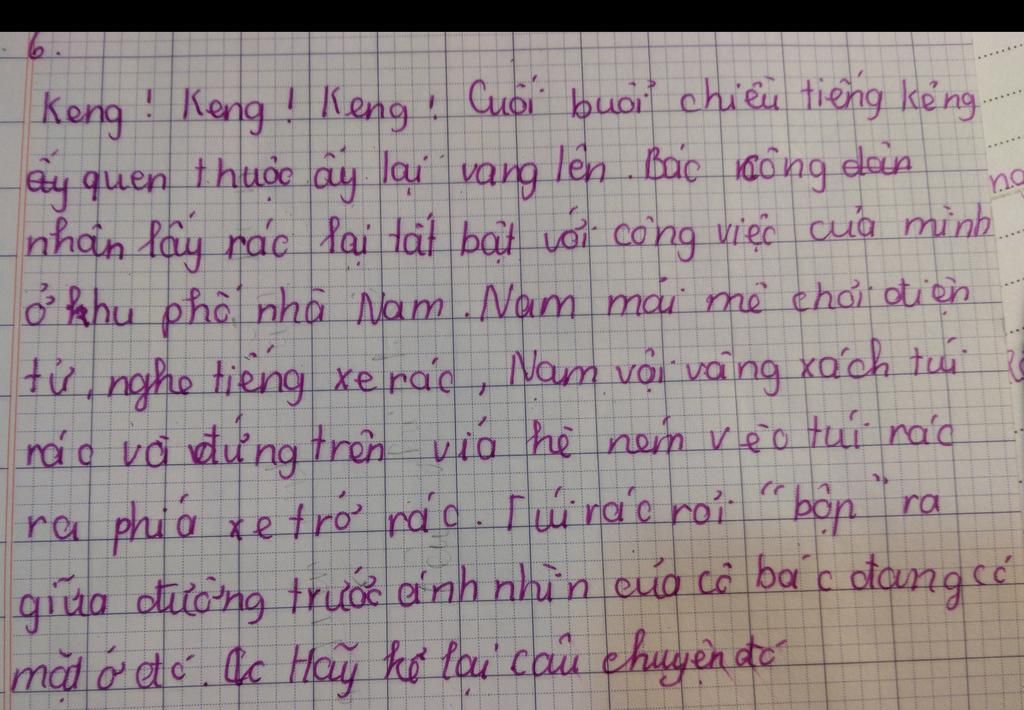 6.
Keng! Keng! Keng! Cuối buổi chiều tiếng kẻng
ấy quen thuộc ấy lại vang lên. Bác công
nhân lấy rác lại tất bật với công việc của mình
ở khu phố nhà Nam. Nam mải mê chơi điện
tử, nghe tiếng xe rác, Nam vội vàng xách túi
rác và đứng trên vỉa hè ném vèo túi rác
ra phía xe trở rác. Túi rác rơi "bộp" ra
giữa đường trước ánh nhìn của cô bác đang có
mặt ở đó. Hãy kể lại câu chuyện đó